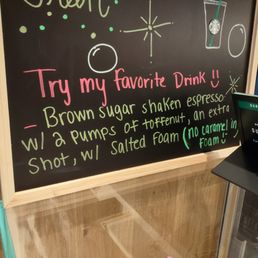 Try my favorite Drink
- Brown sugar shaken espresso
w/ 2 pumps of toffenut, an extra
shot, w/ Salted Foam (no caramel in
Foam)